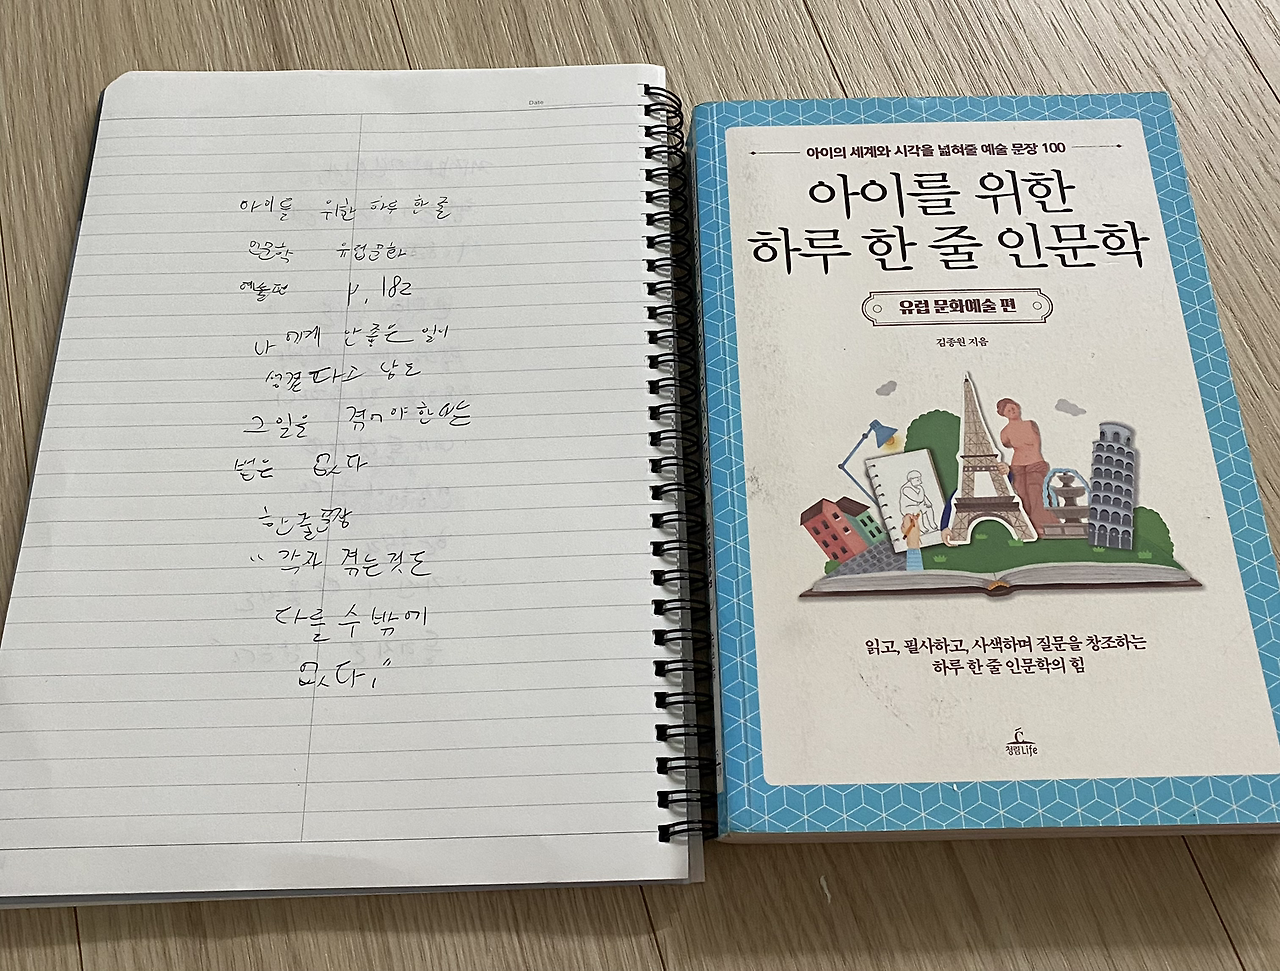 Date
아이를 위한 하루 한 줄
인문학 유럽문화
예술편 p. 182
나에게 안 좋은 일이
생겼다고 남도
그 일을 겪어야 한다는
법은 없다
한줄문장
"각자 겪는것도
다를 수 밖에
없다."
아이의 세계와 시각을 넓혀줄 예술 문장 100
아이를 위한
하루 한 줄 인문학
유럽 문화예술 편
김종원 지음
읽고, 필사하고, 사색하며 질문을 창조하는
하루 한 줄 인문학의 힘
청림Life